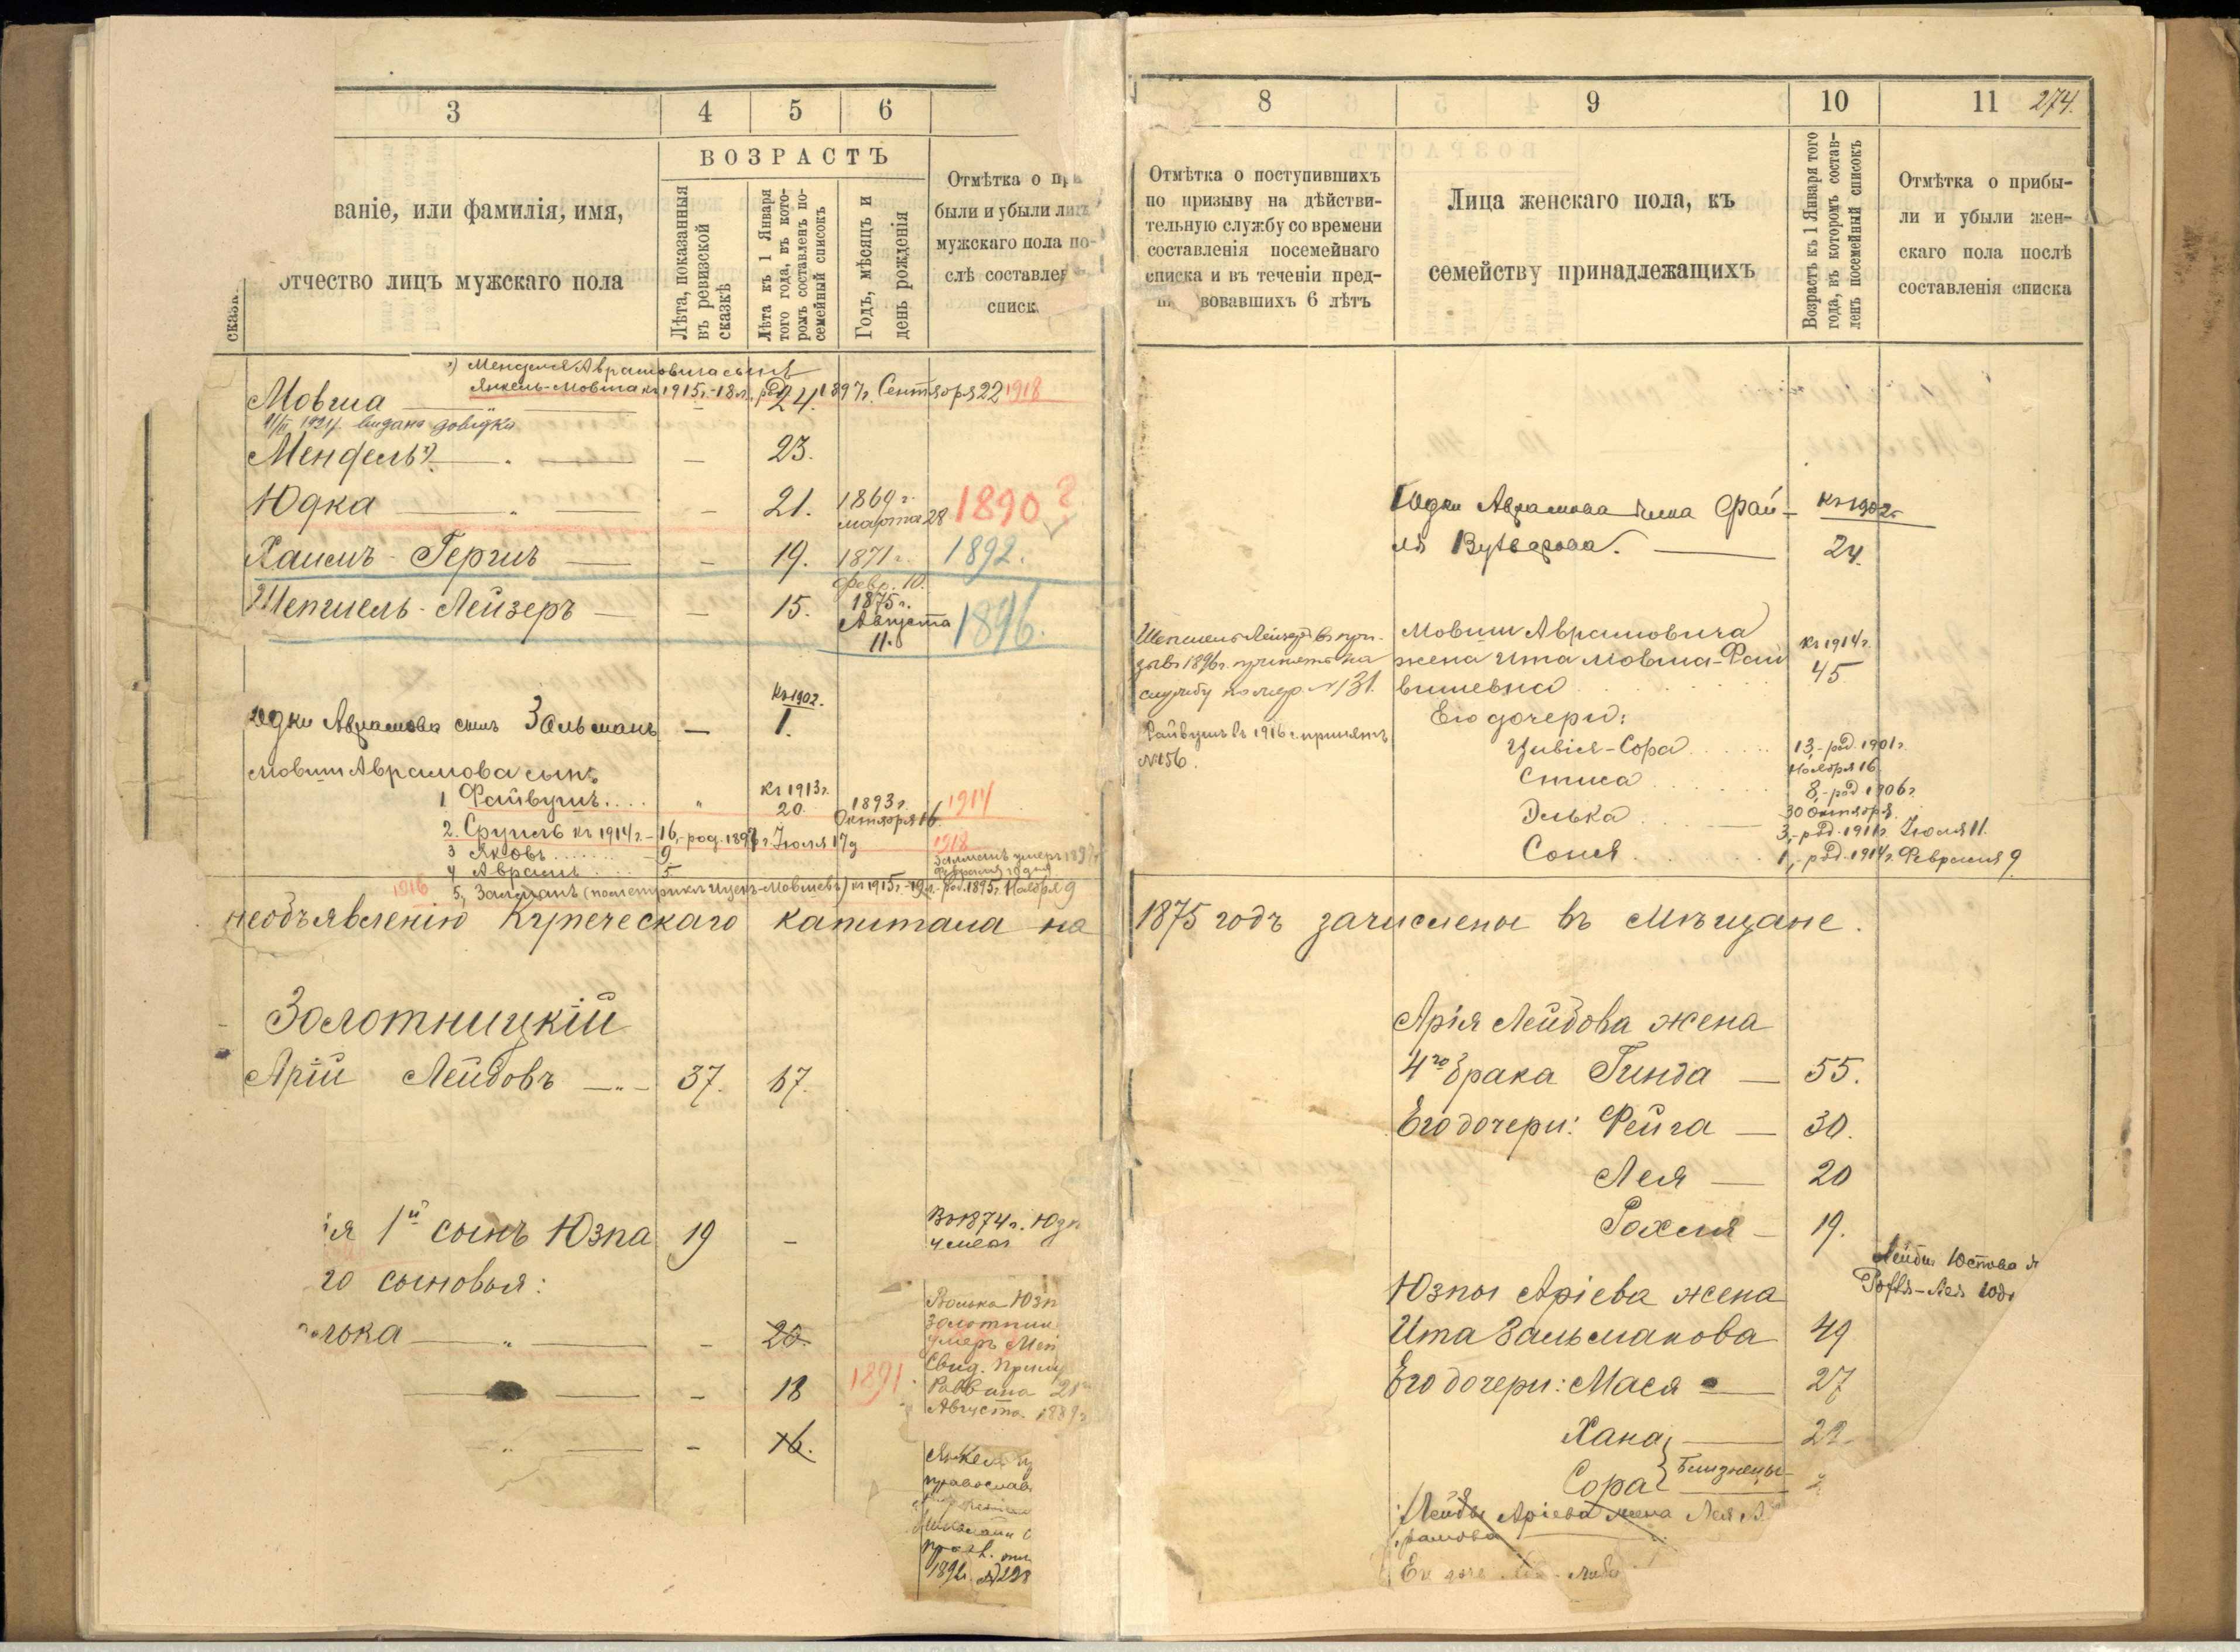 3
4
5
6
ВОЗРАСТЪ
ваніе, или фамилія, имя,
отчество лицъ мужскаго пола
Лѣта, показанныя
въ ревизской
сказкѣ
Лѣта къ 1 Января
того года, въ кото-
ромъ составленъ по-
семейный списокъ
Годъ, мѣсяцъ и
день рожденія
Отмѣтка о при
были и убыли лицъ
мужскаго пола по-
слѣ составле
списк
Менделя Аврамовича сынъ
Янкель-Мовша къ 1915 г.-18 л., род. 1897 г. Сентября 22 1918
Мовша — „ — - 24.
1921 г. видана довідка
Мендель — „ — - 23.
Юдка — „ — - 21. 1869 г. марта 28 1890 ?
Хаимъ-Гершъ — - 19. 1871 г. февр. 10. 1892.
Шепшель-Лейзеръ — - 15. 1875 г. Августа 11. 1896.
Къ 1902.
Юдки Аврамова сынъ Зальманъ — 1.
Мовши Аврамова сынъ
къ 1913 г.
1 Файвушъ.... „ 20. 1893 г. Октября 16. 1914
2. Сруль къ 1914 г.- 16,-род. 1897 г. Іюля 17 1918
3 Яковъ...... 9
4 Аврамъ.... 5
1916 5, Залманъ (по метрикѣ Ицекъ-Мовшевъ) къ 1915 г.-19 л.-род. 1895 г. Ноября 9
необъявленію Купеческаго капитала на
Золотницкій
Арій Лейбовъ — „ - 37. 67.
ія 1й сынъ Юзпа 19 -
Въ 1874 г.
го сыновья:
лька — „ — - 26.
Волька Юзп
Золотниц
умеръ
Свид.
Раввина 21
Августа 1889 г
- 18 1891
„ — - 16.
православ
1892 №298
8
9
10
11 274.
Отмѣтка о поступившихъ
по призыву на дѣйстви-
тельную службу со времени
составленія посемейнаго
списка и въ теченіи пред-
вовавшихъ 6 лѣтъ
Лица женскаго пола, къ
семейству принадлежащихъ
Возрастъ къ 1 Января того
года, въ которомъ состав-
ленъ посемейный списокъ
Отмѣтка о прибы-
ли и убыли жен-
скаго пола послѣ
составленія списка
Юдки Аврамова жена Фай- къ 1902 г.
ля — 24.
Шепшель Лейзеръ въ при-
зывъ 1896 г. принятъ на
службу по жер. №131.
Мовши Аврамовича къ 1914 г.
жена Ита Мовша-Фай 45
вишевна
Файвушъ въ 1916 г. принятъ
№156.
Его дочери:
Цивія-Сора...... 13,-род. 1901 г. Ноября 16
Стиса...... 8,-род. 1906 г. 30 Октября
Элька...... 3,-род. 1911 г. Іюля 11.
Соня...... 1,-род. 1914 г. Февраля 9.
1875 годъ зачислены въ Мѣщане.
Арія Лейбова жена
4го брака Гинда — 55.
Его дочери: Фейга — 30.
Лея — 20
Рохля — 19.
Юзпы Аріева жена
Ита Зальманова 49
Его дочери: Мася — 27
Хана — 22
Сора близнецы
Лейбы Аріева жена Лея